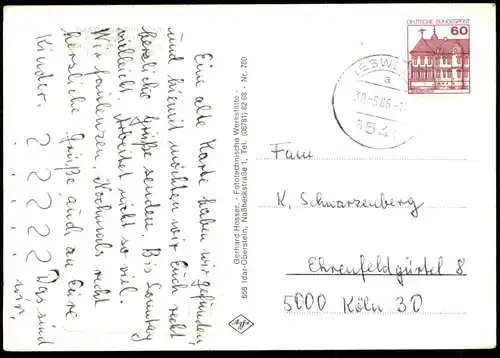 Eine alte Karte haben wir gefunden,
und hiermit möchten wir Euch recht
herzliche Grüße senden. Bis Sonntag
vielleicht. Arbeitet nicht so viel.
Wir faulenzen. Nochmals recht
herzliche Grüße auch an Eure
Kinder. Das sind
wir,
Gerhard Hosser, - Fototechnische Werkstätte -
658 Idar-Oberstein, Naßheckstraße 1, Tel. (06781) 62 83 - Nr. 780
Agfa
DEUTSCHE BUNDESPOST
60
a
30.-5.86-1
Fam
K. Schwarzenberg
Ehrenfeldgürtel 8
5000 Köln 30